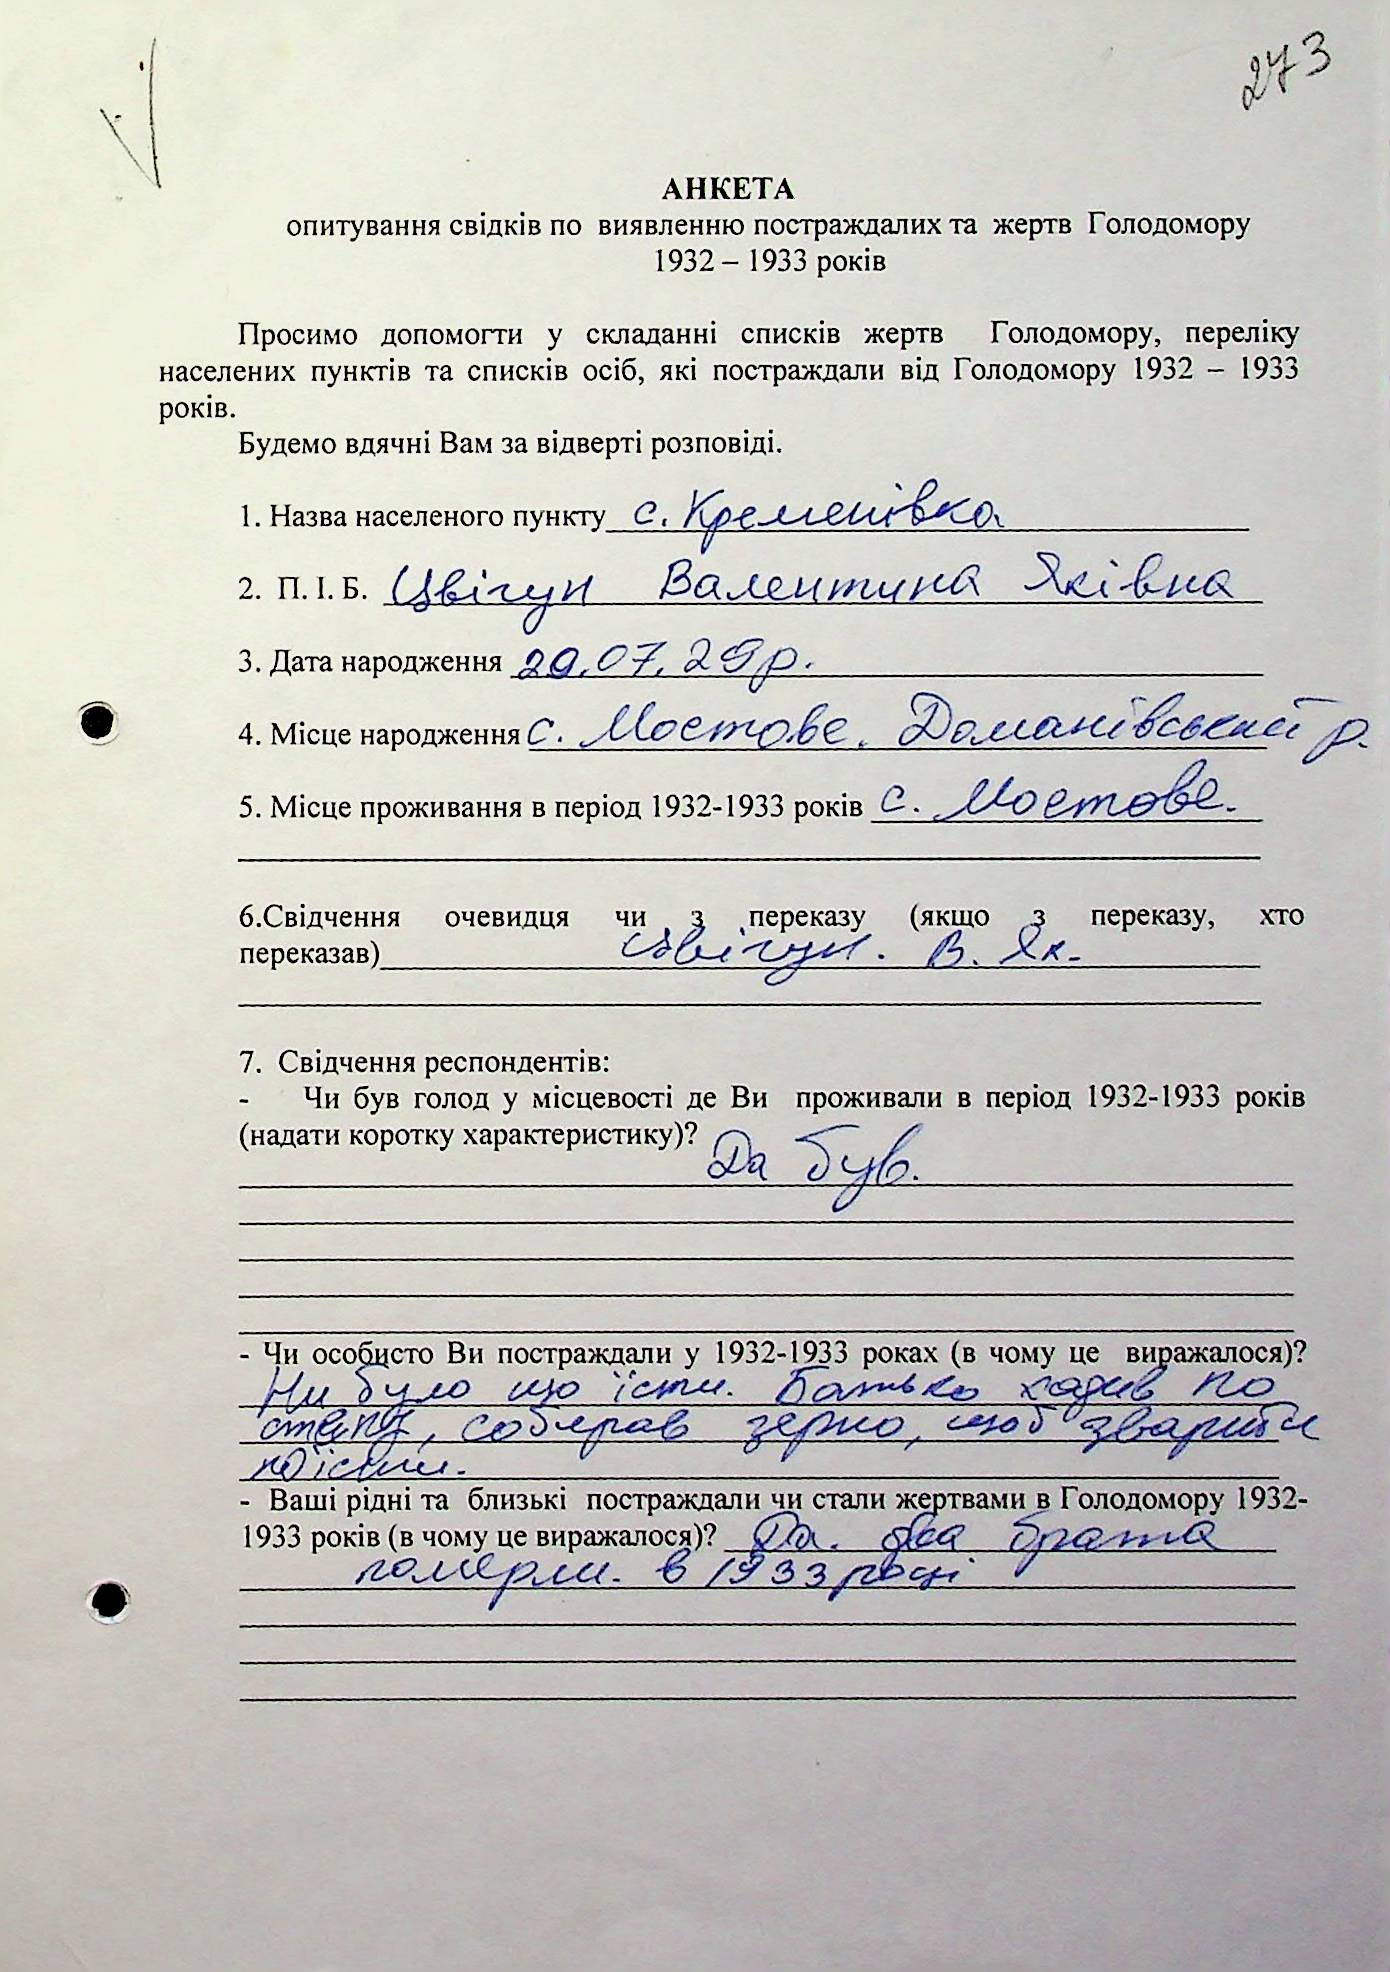 273
АНКЕТА
опитування свідків по виявленню постраждалих та жертв Голодомору
1932 – 1933 років
Просимо допомогти у складанні списків жертв Голодомору, переліку
населених пунктів та списків осіб, які постраждали від Голодомору 1932 – 1933
років.
Будемо вдячні Вам за відверті розповіді.
1. Назва населеного пункту с. Кременівка
2. П. І. Б. Цвігун Валентина Яківна
3. Дата народження 20.07.29р.
4. Місце народження с. Мостове. Доманівський р.
5. Місце проживання в період 1932-1933 років с. Мостове.
6.Свідчення очевидця чи з переказу (якщо з переказу, хто
переказав) Цвігун. В. Як.
7. Свідчення респондентів:
- Чи був голод у місцевості де Ви проживали в період 1932-1933 років
(надати коротку характеристику)?
Да був.
- Чи особисто Ви постраждали у 1932-1933 роках (в чому це виражалося)?
Ни було що їсти. Батько ходив по
степу, собирав зерно, щоб зварити
поїсти.
- Ваші рідні та близькі постраждали чи стали жертвами в Голодомору 1932-
1933 років (в чому це виражалося)? Да. два брата
померли. в 1933 році